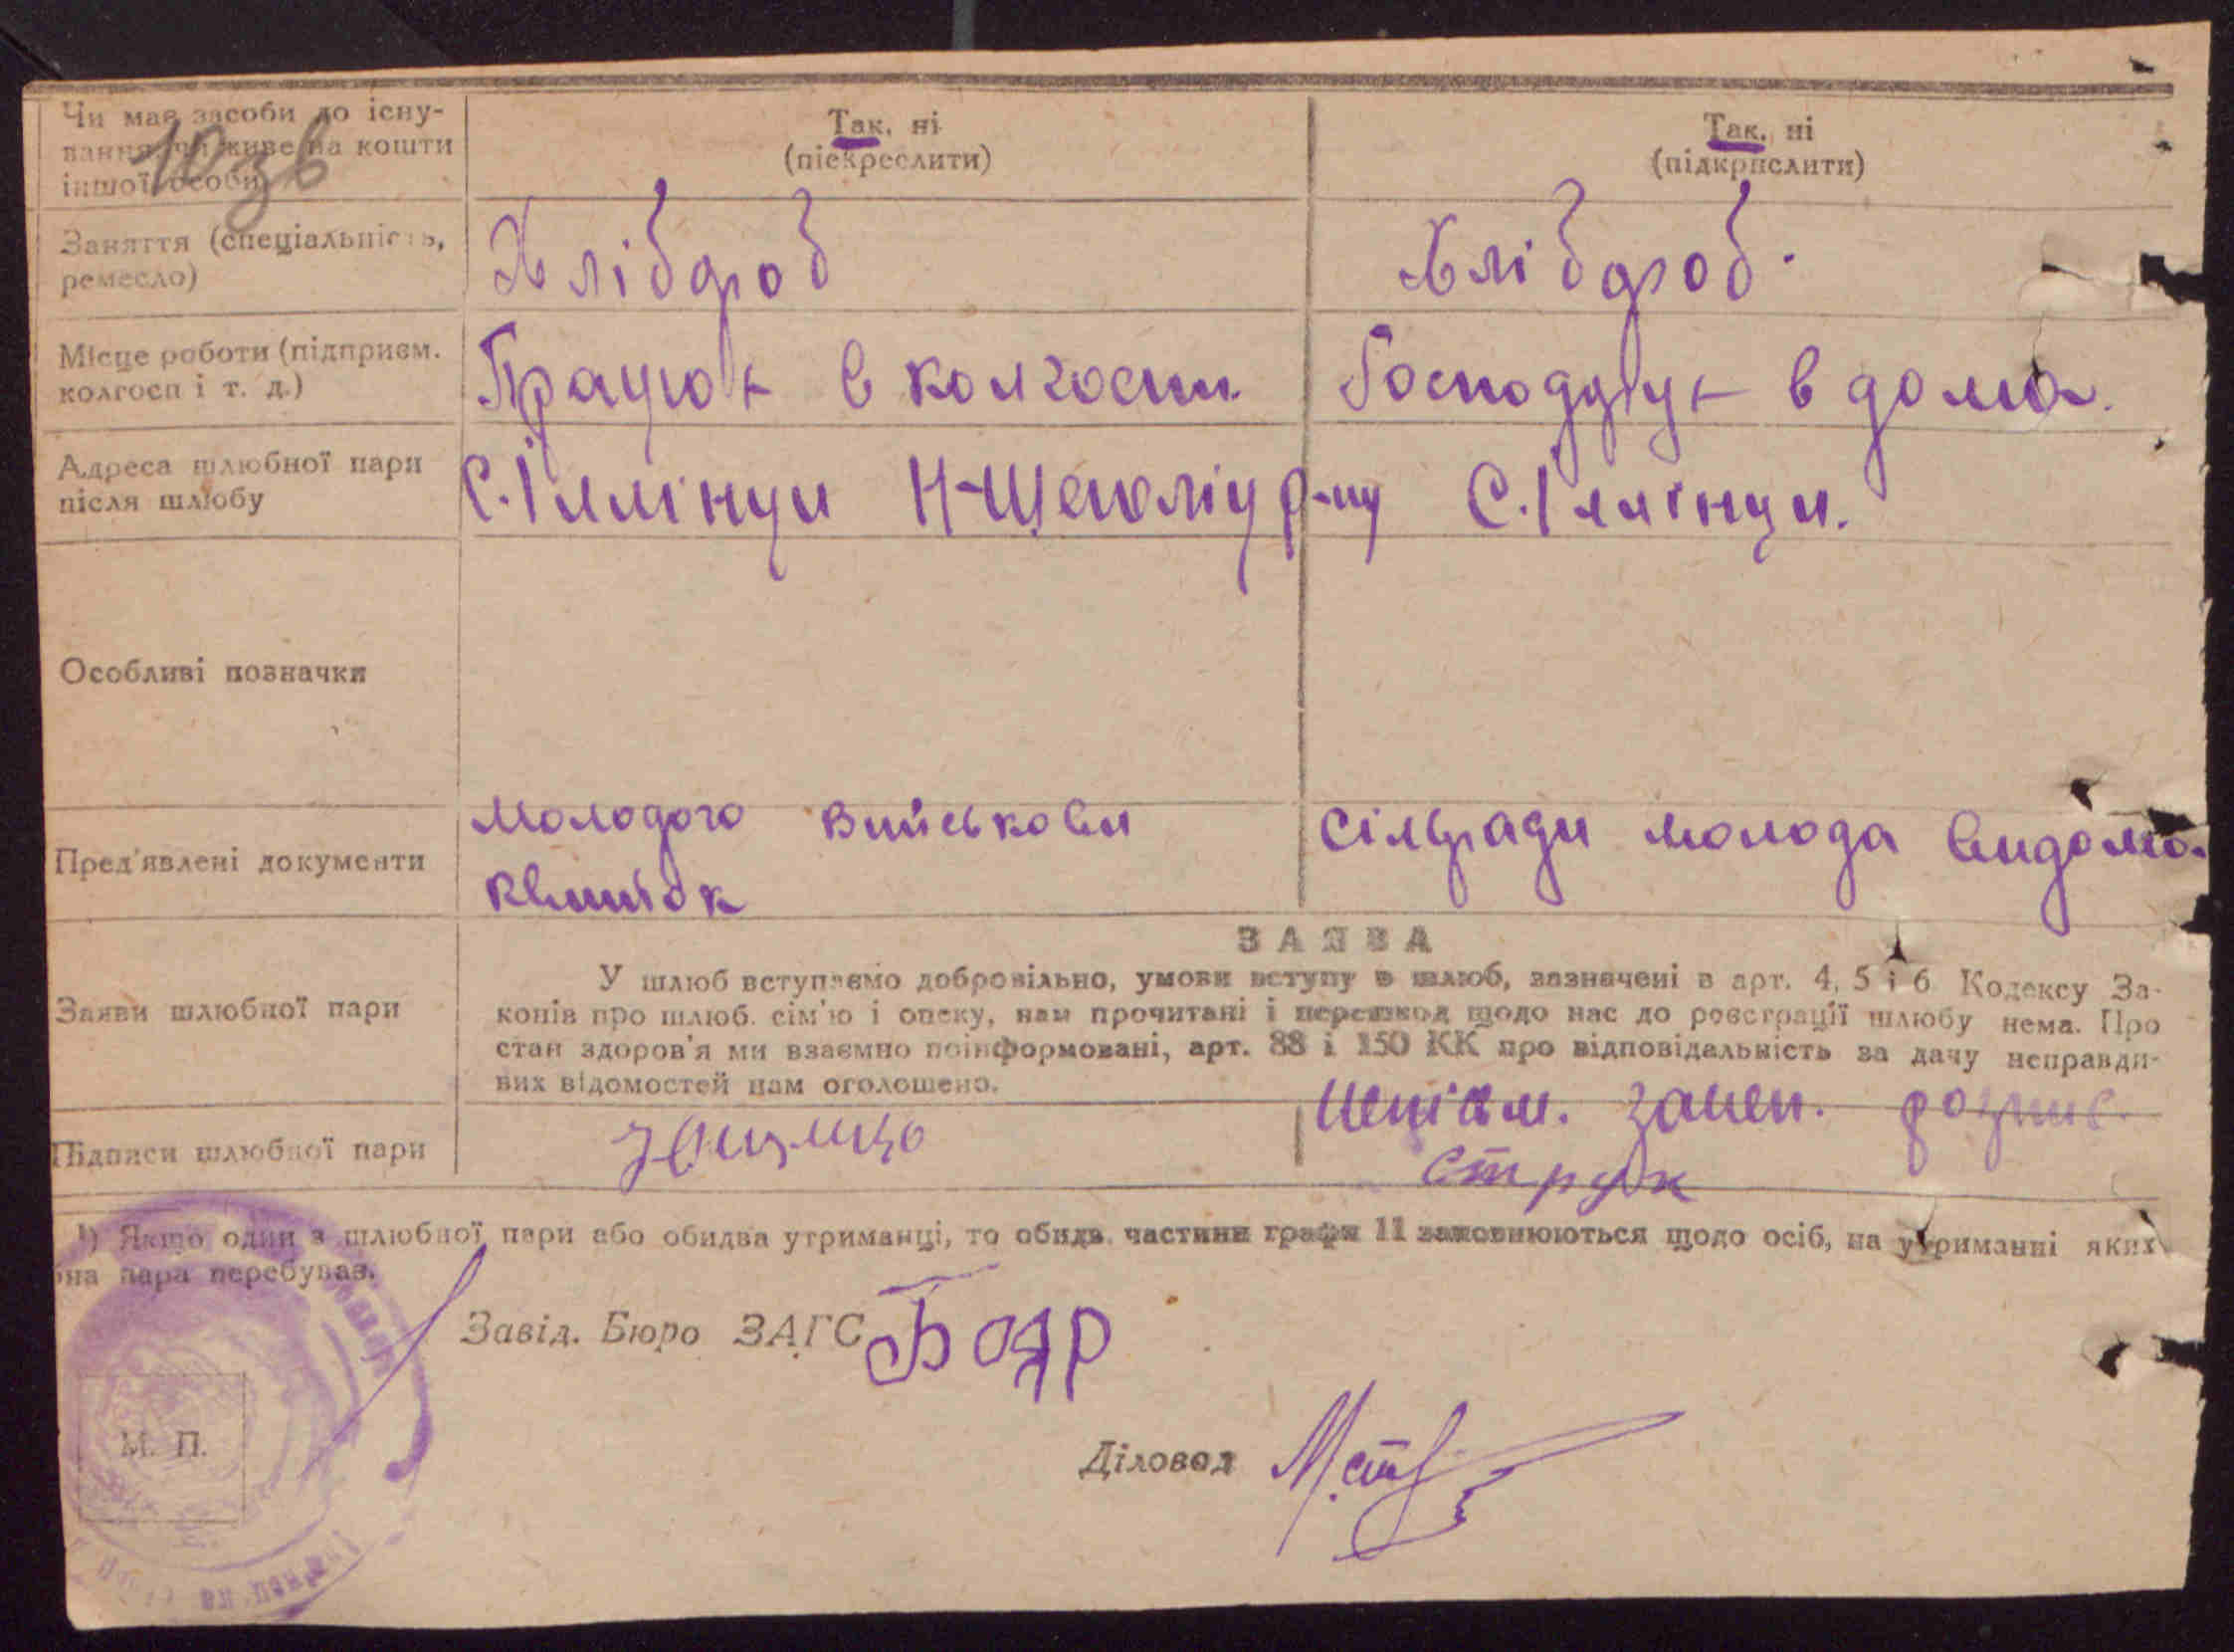 Чи має засоби до існу-
вання чи живе на кошти
іншої особи
Так, ні
(піекреслити)
Так, ні
(підкрислити)
Заняття (спеціальність,
ремесло)
Хлібороб
Хлібороб.
Місце роботи (підприєм.
колгосп і т. д.)
Працює в колгоспи
Господарує в дома.
Адреса шлюбної пари
після шлюбу
С. Іллінци Н-Шепеліц р-ну
С. Іллінци.
Особливі позначки
Пред'явлені документи
Молодого Вийськови
квиток
Сільради молода
Заяви шлюбної пари
ЗАЯВА
У шлюб вступаємо добровільно, умови вступу в шлюб, зазначені в арт. 4, 5 і 6 Кодексу За-
конів про шлюб. сім'ю і опеку, нам прочитані і перешкод щодо нас до реєстрації шлюбу нема. Про
стан здоров'я ми взаємно поінформовані, арт. 88 і 150 КК про відповідальність за дачу неправди-
вих відомостей нам оголошено.
Підписи шлюбної пари
Струк
¹) Якщо один з шлюбної пари або обидва утриманці, то обидв. частини графи 11 заповнюються щодо осіб, на утриманні яких
на пара перебуває.
Завід. Бюро ЗАГС
М. П.
Діловод